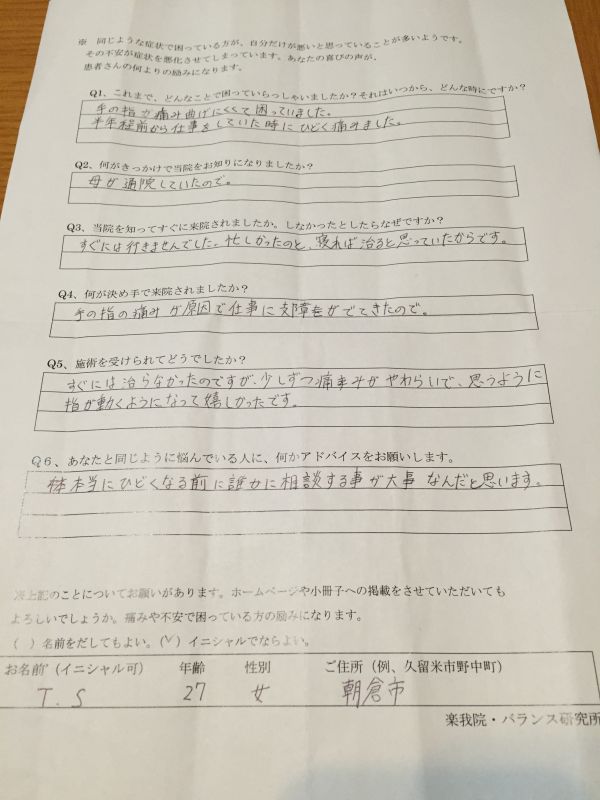 ※ 同じような症状で困っている方が、自分だけが悪いと思っていることが多いようです。
その不安が症状を悪化させてしまっています。あなたの喜びの声が、
患者さんの何よりの励みになります。
Q1、これまで、どんなことで困っていらっしゃいましたか?それはいつから、どんな時にですか?
手の指が痛み曲げにくくて困っていました。
半年程前から仕事をしていた時にひどく痛みました。
Q2、何がきっかけで当院をお知りになりましたか?
母が通院していたので。
Q3、当院を知ってすぐに来院されましたか。しなかったとしたらなぜですか?
すぐには行きませんでした。忙しかったのと、寝れば治ると思っていたからです。
Q4、何が決め手で来院されましたか?
手の指の痛みが原因で仕事に支障がでてきたので。
Q5、施術を受けられてどうでしたか?
すぐには治らなかったのですが、少しずつ痛みがやわらいで、思うように
指が動くようになって嬉しかったです。
Q6、あなたと同じように悩んでいる人に、何かアドバイスをお願いします。
本当にひどくなる前に誰かに相談する事が大事なんだと思います。
※上記のことについてお願いがあります。ホームページや小冊子への掲載をさせていただいても
よろしいでしょうか。痛みや不安で困っている方の励みになります。
( )名前をだしてもよい。(✓)イニシャルでならよい。
お名前(イニシャル可) 年齢 性別 ご住所(例、久留米市野中町)
T.S 27 女 朝倉市
楽我院・バランス研究所